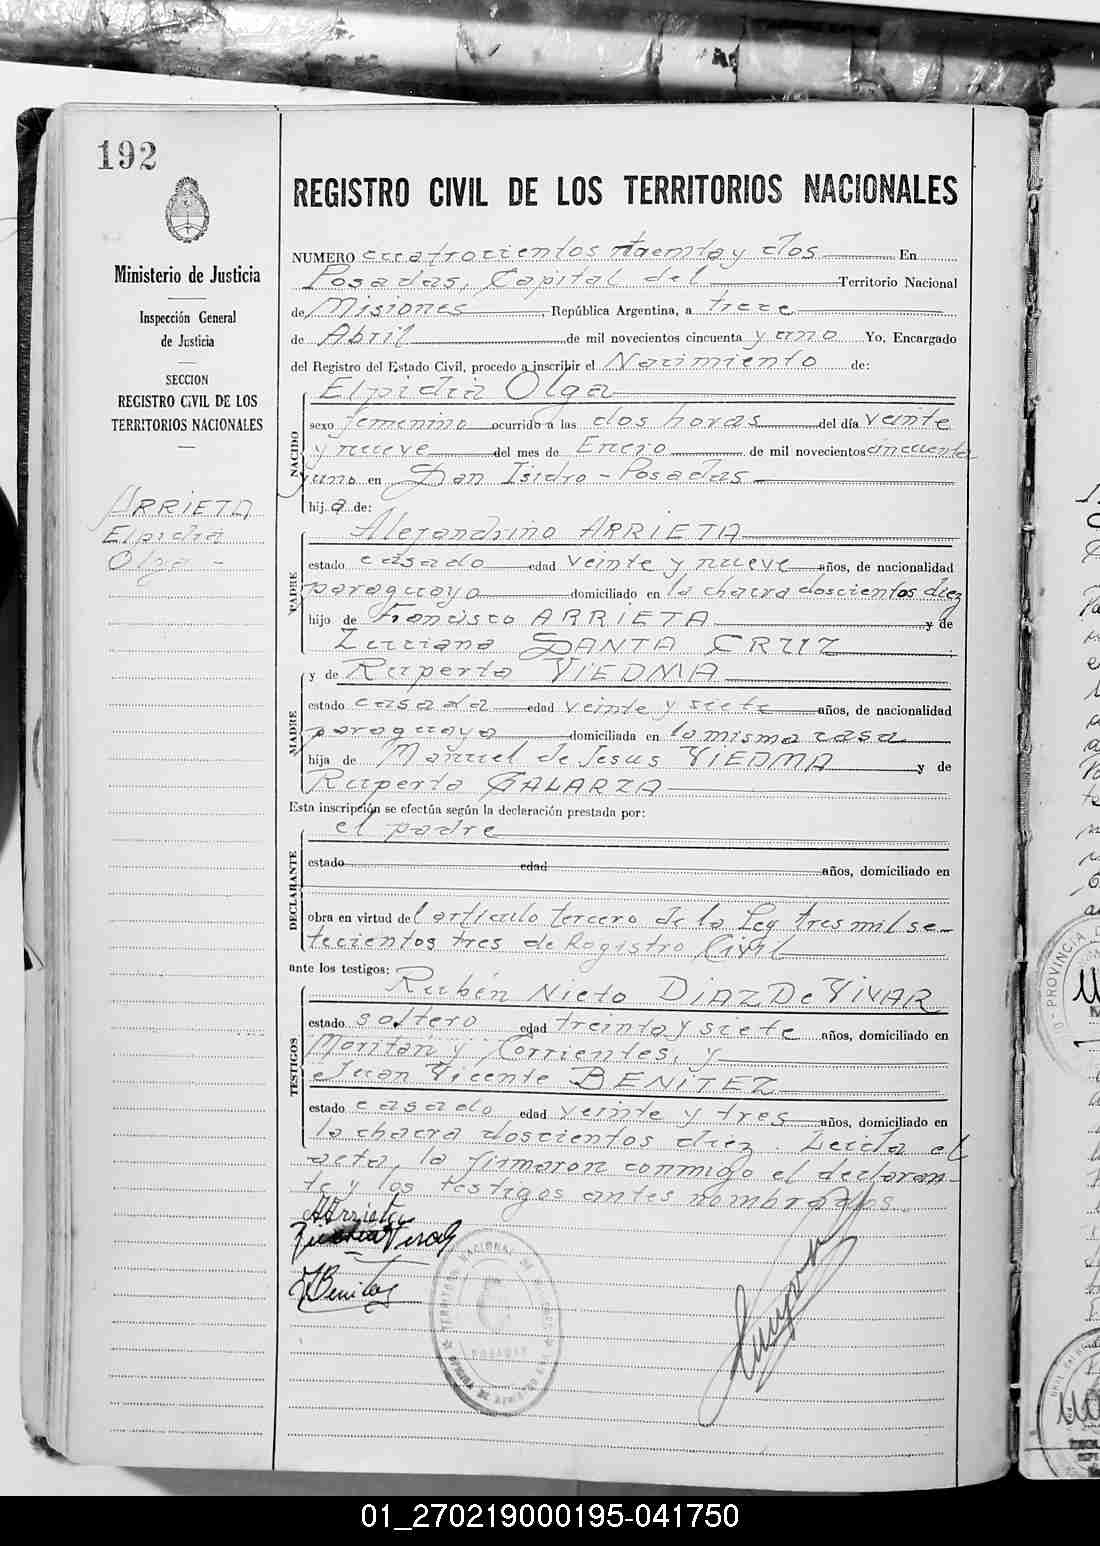 192
Ministerio de Justicia
Inspección General
de Justicia
SECCION
REGISTRO CIVIL DE LOS
TERRITORIOS NACIONALES
ARRIETA
Elpidia
Olga -
REGISTRO CIVIL DE LOS TERRITORIOS NACIONALES
NUMERO cuatrocientos treinta y dos En
Posadas, Capital del Territorio Nacional
de Misiones, República Argentina, a trece
de Abril de mil novecientos cincuenta y uno Yo, Encargado
del Registro del Estado Civil, procedo a inscribir el Nacimiento de:
Elpidia Olga
NACIDO
sexo femenino ocurrido a las dos horas del día veinte
y nueve del mes de Enero de mil novecientos cincuenta
y uno en San Isidro - Posadas
hija de:
Alejandrino ARRIETA
PADRE
estado casado edad veinte y nueve años, de nacionalidad
paraguayo domiciliado en la chacra doscientos diez
hijo de Francisco ARRIETA y de
Luciana SANTA CRUZ
y de Ruperta VIEDMA
MADRE
estado casada edad veinte y siete años, de nacionalidad
paraguaya domiciliada en la misma casa
hija de Manuel de Jesus VIEDMA y de
Ruperta GALARZA
Esta inscripción se efectúa según la declaración prestada por:
el padre
DECLARANTE
estado edad años, domiciliado en
obra en virtud del artículo tercero de la Ley tres mil se-
tecientos tres de Registro Civil
ante los testigos:
Rubén Nieto DIAZ De VIVAR
TESTIGOS
estado soltero edad treinta y siete años, domiciliado en
Moritan y Corrientes, y
Juan Vicente BENITEZ
estado casado edad veinte y tres años, domiciliado en
la chacra doscientos diez. Leida el
acta, la firmaron conmigo el declaran-
te y los testigos antes nombrados.
AArrieta
JBenitez
TERRITORIO NACIONAL DE MISIONES
POSADAS
01_270219000195-041750